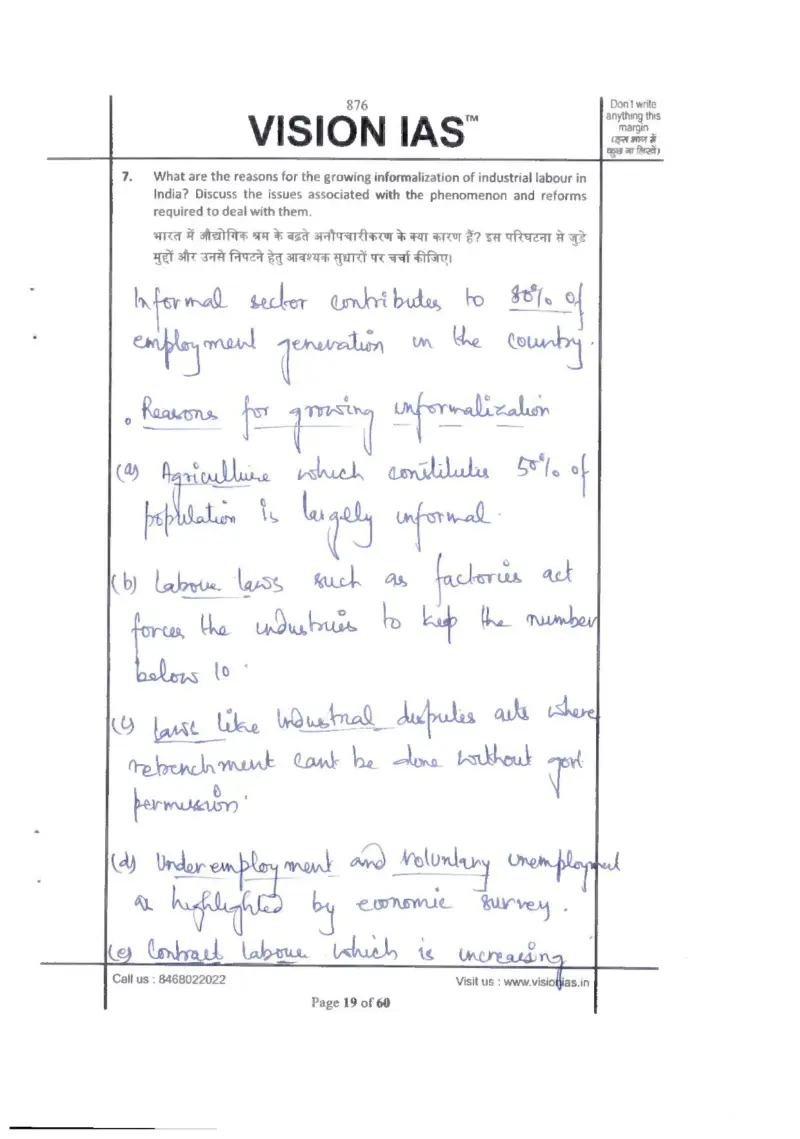 876
VISION IAS™
Don't write
anything this
margin
(इस भाग में
कुछ ना लिखें)
7. What are the reasons for the growing informalization of industrial labour in
India? Discuss the issues associated with the phenomenon and reforms
required to deal with them.
भारत में औद्योगिक श्रम के बढ़ते अनौपचारीकरण के क्या कारण हैं? इस परिघटना से जुड़े
मुद्दों और उनसे निपटने हेतु आवश्यक सुधारों पर चर्चा कीजिए।
Informal sector contributes to 80% of
employment generation in the country.
Reasons for growing informalization
(a) Agriculture which constitutes 50% of
population is largely informal.
(b) Labour laws such as factories act
forces the industries to keep the number
below 10.
(c) Laws like Industrial disputes acts where
retrenchment cant be done without govt
permission.
(d) Under employment and voluntary unemployment
as highlighted by economic survey.
(e) Contract labour which is increasing
Call us : 8468022022
Visit us : www.visionias.in
Page 19 of 60